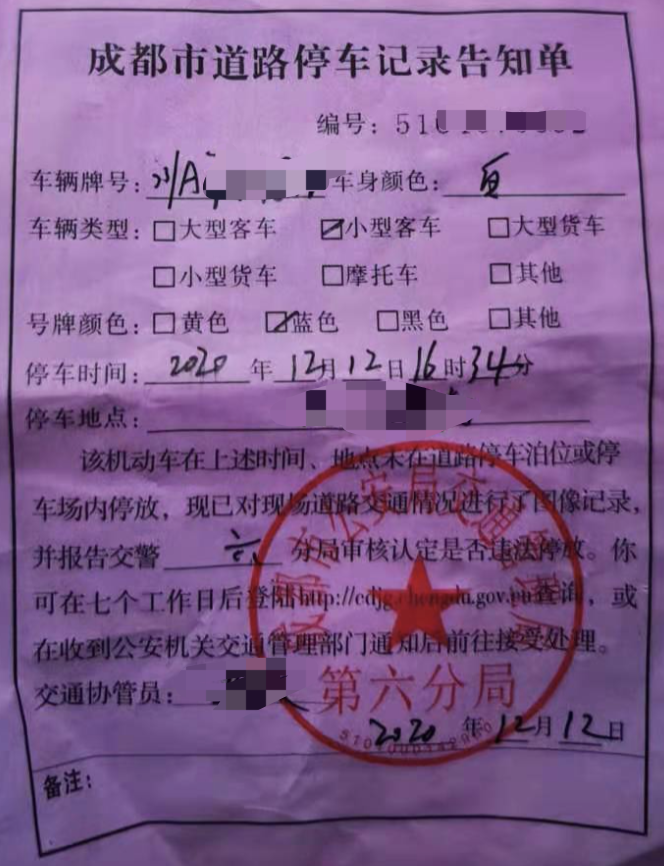 成都市道路停车记录告知单
编号：510
车辆牌号：川A 车身颜色：白
车辆类型：□大型客车 ☑小型客车 □大型货车
□小型货车 □摩托车 □其他
号牌颜色：□黄色 ☑蓝色 □黑色 □其他
停车时间：2020年12月12日16时34分
停车地点：
该机动车在上述时间、地点未在道路停车泊位或停
车场内停放，现已对现场道路交通情况进行了图像记录，
并报告交警 六 分局审核认定是否违法停放。你
可在七个工作日后登陆http://cdjg.chengdu.gov.cn查询，或
在收到公安机关交通管理部门通知后前往接受处理。
交通协管员：
成都市公安局交通管理局
第六分局
2020年12月12日
备注：